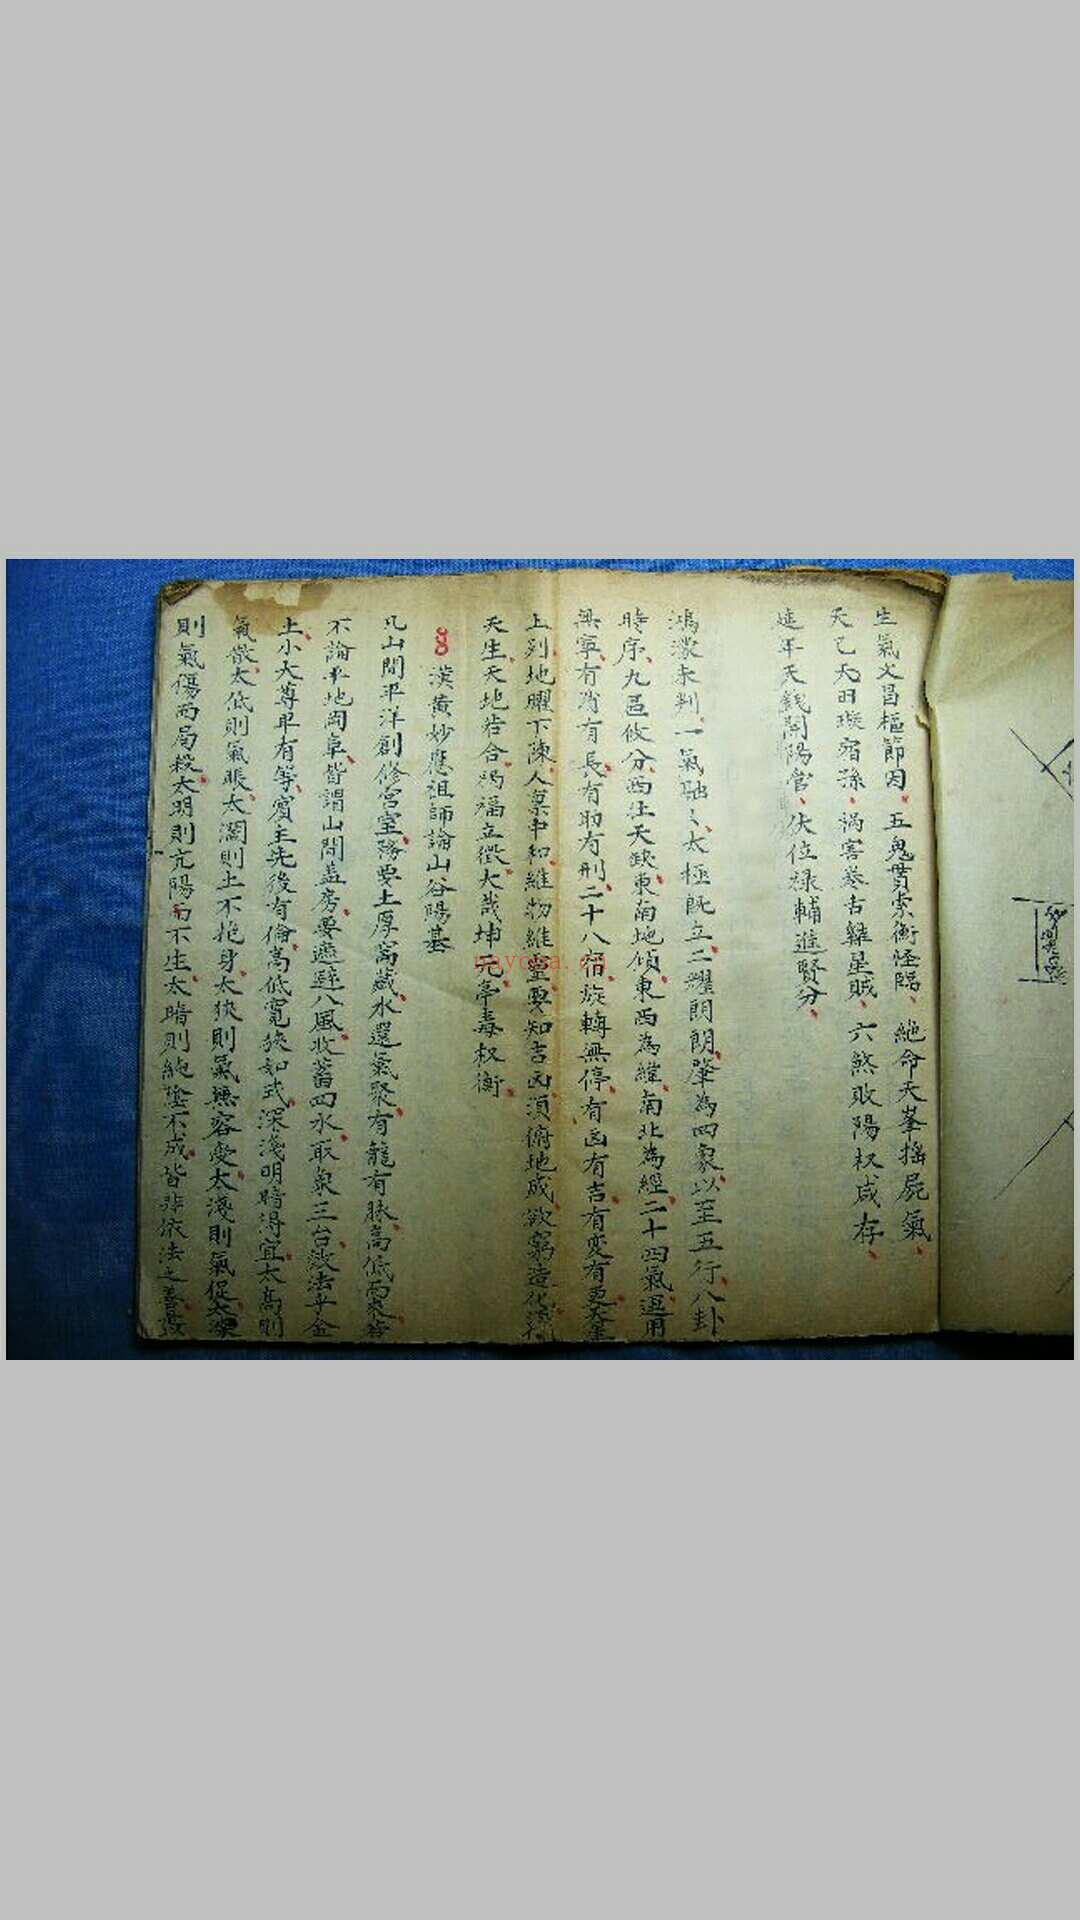 生氣文昌樞節因、五鬼貫索衡怪臨、絕命天峯搖屍氣、
天乙天日璇宿孫、禍害卷舌雞星賊、六煞敗陽权咸存、
延年天錢開陽官、伏位祿輔進賢分、
鴻濛未判、一氣融〻、太極旣立二耀朗朗、肇為四象、以至五行、八卦
時序、九區攸分、西北天缺、東南地傾、東西為緯、南北為經、二十四氣運用
無寧、有消有長、有助有刑、二十八宿、旋轉無停、有凶有吉、有变有更、
上列地曜下陳、人稟中和、維物維靈、要知吉凶、須俯地成、欲窮造化
天生、天地若合、禍福立徵、大哉坤元、亭毒权衡、
漢黃妙應祖師論山谷陽基
凡山間平洋創修宮室、務要土厚窩藏、水還氣聚、有龍有脉、高低而
不論平地岡阜、皆謂山間蓋房、要遮避八風、收蓄四水、取象三台、法乎金
土、小大尊卑有等、賓主先後有倫、高低寬狹如式、深淺明暗得宜、太高則
氣散、太低則氣脹、太濶則土不抱身、太狹則氣無容受、太淺則氣促、太深
則氣傷而局殺、太明則亢陽而不生、太暗則純陰不成、皆非依法之善
nayona.cn